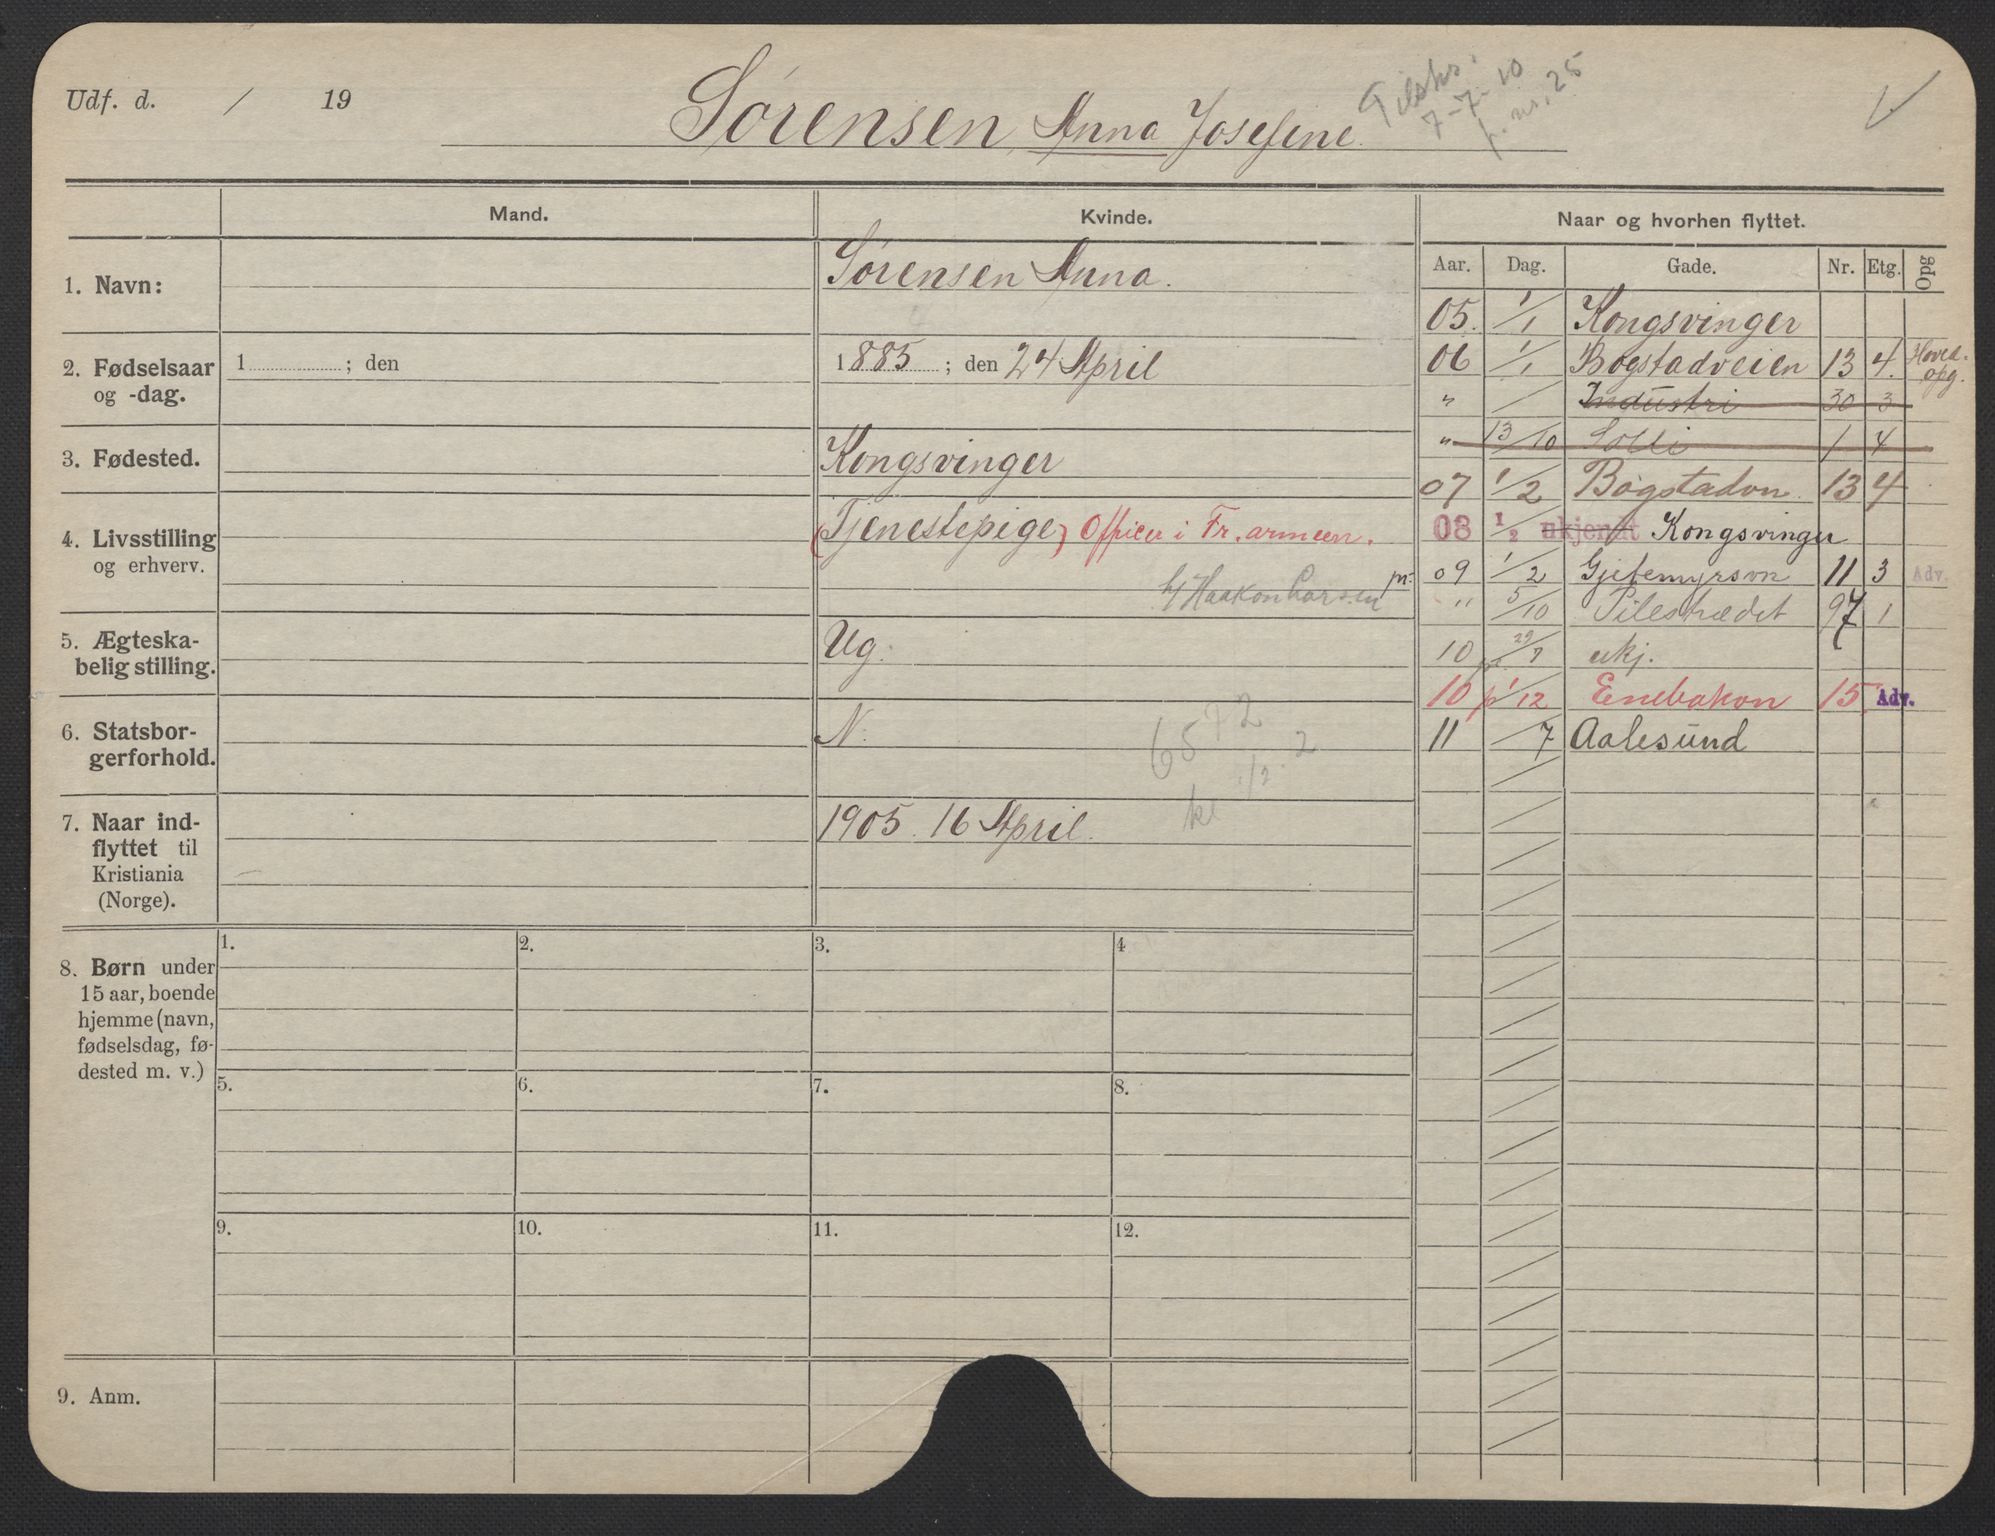 Udf. d. / 19
Sørensen, Anna Josefine.
7-7-10
Mand.
Kvinde.
Naar og hvorhen flyttet.
Aar. Dag. Gade. Nr. Etg. Opg
1. Navn:
Sørensen Anna.
2. Fødselsaar
og -dag.
1 ; den
1885 ; den 24 April
3. Fødested.
Kongsvinger
4. Livsstilling
og erhverv.
(Tjenestepige) Officer i Fr. armeen.
Haakon Larsen
5. Ægteska-
belig stilling.
Ug.
6. Statsbor-
gerforhold.
N.
7. Naar ind-
flyttet til
Kristiania
(Norge).
1905. 16 April.
05. 1/1 Kongsvinger
06 1/1 Bogstadveien 13 4. Hoved.
opg.
" / Industri 30 3
" 13/10 Solli 1 4
07 1/2 Bogstadvn. 13 4
08 1/2 ukjendt Kongsvinger
09 1/2 Gjetemyrsvn 11 3 Adv.
" 5/10 Pilestrædet 97 1
10 29/7 ukj.
10 p 1/12 Enebakvn 15 Adv.
11 /7 Aalesund
8. Børn under
15 aar, boende
hjemme (navn,
fødselsdag, fø-
dested m. v.)
1. 2. 3. 4
5. 6. 7. 8.
9. 10. 11. 12.
9. Anm.